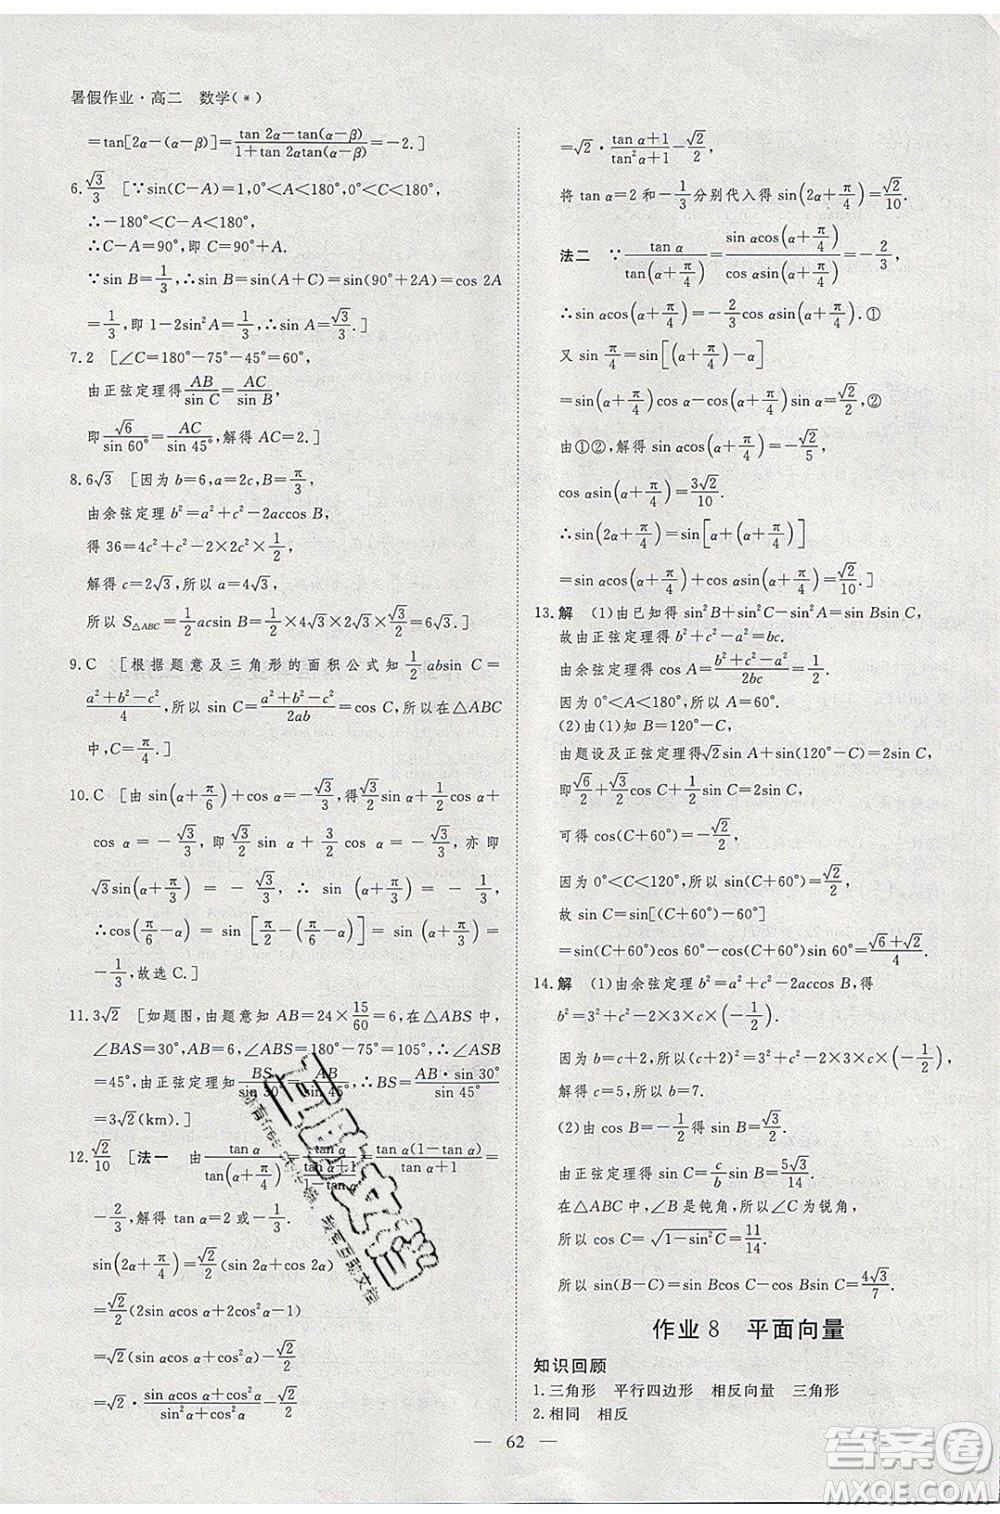 暑假作业·高二 数学(*)
=tan[2α-(α-β)]=\frac{tan 2α-tan(α-β)}{1+tan 2αtan(α-β)}=-2.]
6.\frac{√3}{3} [∵sin(C-A)=1,0°<A<180°,0°<C<180°,
∴-180°<C-A<180°.
∴C-A=90°,即 C=90°+A.
∵sin B=\frac{1}{3},∴sin B=sin(A+C)=sin(90°+2A)=cos 2A
=\frac{1}{3},即 1-2sin²A=\frac{1}{3},∴sin A=\frac{√3}{3}.]
7.2 [∠C=180°-75°-45°=60°,
由正弦定理得\frac{AB}{sin C}=\frac{AC}{sin B},
即\frac{√6}{sin 60°}=\frac{AC}{sin 45°},解得 AC=2.]
8.6√3 [因为 b=6,a=2c,B=\frac{π}{3},
由余弦定理 b²=a²+c²-2accos B,
得 36=4c²+c²-2×2c²×\frac{1}{2},
解得 c=2√3,所以 a=4√3,
所以 S_{△ABC}=\frac{1}{2}acsin B=\frac{1}{2}×4√3×2√3×\frac{√3}{2}=6√3.]
9.C [根据题意及三角形的面积公式知\frac{1}{2}absin C=
\frac{a²+b²-c²}{4},所以 sin C=\frac{a²+b²-c²}{2ab}=cos C,所以在△ABC
中,C=\frac{π}{4}.]
10.C [由 sin(α+\frac{π}{6})+cos α=-\frac{√3}{3},得\frac{√3}{2}sin α+\frac{1}{2}cos α+
cos α=-\frac{√3}{3},即\frac{√3}{2}sin α+\frac{3}{2}cos α=-\frac{√3}{3},亦即
√3sin(α+\frac{π}{3})=-\frac{√3}{3},∴sin(α+\frac{π}{3})=-\frac{1}{3},
∴cos(\frac{π}{6}-α)=sin[\frac{π}{2}-(\frac{π}{6}-α)]=sin(\frac{π}{3}+α)=
-\frac{1}{3},故选 C.]
11.3√2 [如题图,由题意知 AB=24×\frac{15}{60}=6,在△ABS 中,
∠BAS=30°,∠ABS=180°-75°=105°,∴∠ASB
=45°,由正弦定理知\frac{BS}{sin 30°}=\frac{AB}{sin 45°},∴BS=\frac{AB·sin 30°}{sin 45°}
=3√2(km).]
12.\frac{√2}{10} [法一 由\frac{tan α}{tan(α+\frac{π}{4})}=\frac{tan α}{\frac{tan α+1}{1-tan α}}=\frac{tan α(1-tan α)}{tan α+1}=
-\frac{2}{3},解得 tan α=2或-\frac{1}{3}.
sin(2α+\frac{π}{4})=\frac{√2}{2}(sin 2α+cos 2α)
=\frac{√2}{2}(2sin αcos α+2cos²α-1)
=√2(sin αcos α+cos²α)-\frac{√2}{2}
=√2·\frac{sin αcos α+cos²α}{sin²α+cos²α}-\frac{√2}{2}
=√2·\frac{tan α+1}{tan²α+1}-\frac{√2}{2},
将 tan α=2 和-\frac{1}{3}分别代入得 sin(2α+\frac{π}{4})=\frac{√2}{10}.
法二 ∵\frac{tan α}{tan(α+\frac{π}{4})}=\frac{sin αcos(α+\frac{π}{4})}{cos αsin(α+\frac{π}{4})}=-\frac{2}{3},
∴sin αcos(α+\frac{π}{4})=-\frac{2}{3}cos αsin(α+\frac{π}{4}).①
又 sin\frac{π}{4}=sin[(α+\frac{π}{4})-α]
=sin(α+\frac{π}{4})cos α-cos(α+\frac{π}{4})sin α=\frac{√2}{2},②
由①②,解得 sin αcos(α+\frac{π}{4})=-\frac{√2}{5},
cos αsin(α+\frac{π}{4})=\frac{3√2}{10}.
∴sin(2α+\frac{π}{4})=sin[α+(α+\frac{π}{4})]
=sin αcos(α+\frac{π}{4})+cos αsin(α+\frac{π}{4})=\frac{√2}{10}.]
13.解 (1)由已知得 sin²B+sin²C-sin²A=sin Bsin C,
故由正弦定理得 b²+c²-a²=bc.
由余弦定理得 cos A=\frac{b²+c²-a²}{2bc}=\frac{1}{2}.
因为 0°<A<180°,所以 A=60°.
(2)由(1)知 B=120°-C,
由题设及正弦定理得√2sin A+sin(120°-C)=2sin C,
即\frac{√6}{2}+\frac{√3}{2}cos C+\frac{1}{2}sin C=2sin C,
可得 cos(C+60°)=-\frac{√2}{2},
因为 0°<C<120°,所以 sin(C+60°)=\frac{√2}{2},
故 sin C=sin[(C+60°)-60°]
=sin(C+60°)cos 60°-cos(C+60°)sin 60°=\frac{√6+√2}{4}.
14.解 (1)由余弦定理 b²=a²+c²-2accos B,得
b²=3²+c²-2×3×c×(-\frac{1}{2}).
因为 b=c+2,所以(c+2)²=3²+c²-2×3×c×(-\frac{1}{2}).
解得 c=5.所以 b=7.
(2)由 cos B=-\frac{1}{2},得 sin B=\frac{√3}{2}.
由正弦定理得 sin C=\frac{c}{b}sin B=\frac{5√3}{14}.
在△ABC 中,∠B 是钝角,所以∠C 为锐角,
所以 cos C=√(1-sin²C)=\frac{11}{14}.
所以 sin(B-C)=sin Bcos C-cos Bsin C=\frac{4√3}{7}.
作业 8 平面向量
知识回顾
1.三角形 平行四边形 相反向量 三角形
2.相同 相反
— 62 —
答案圈
MXQE.COM